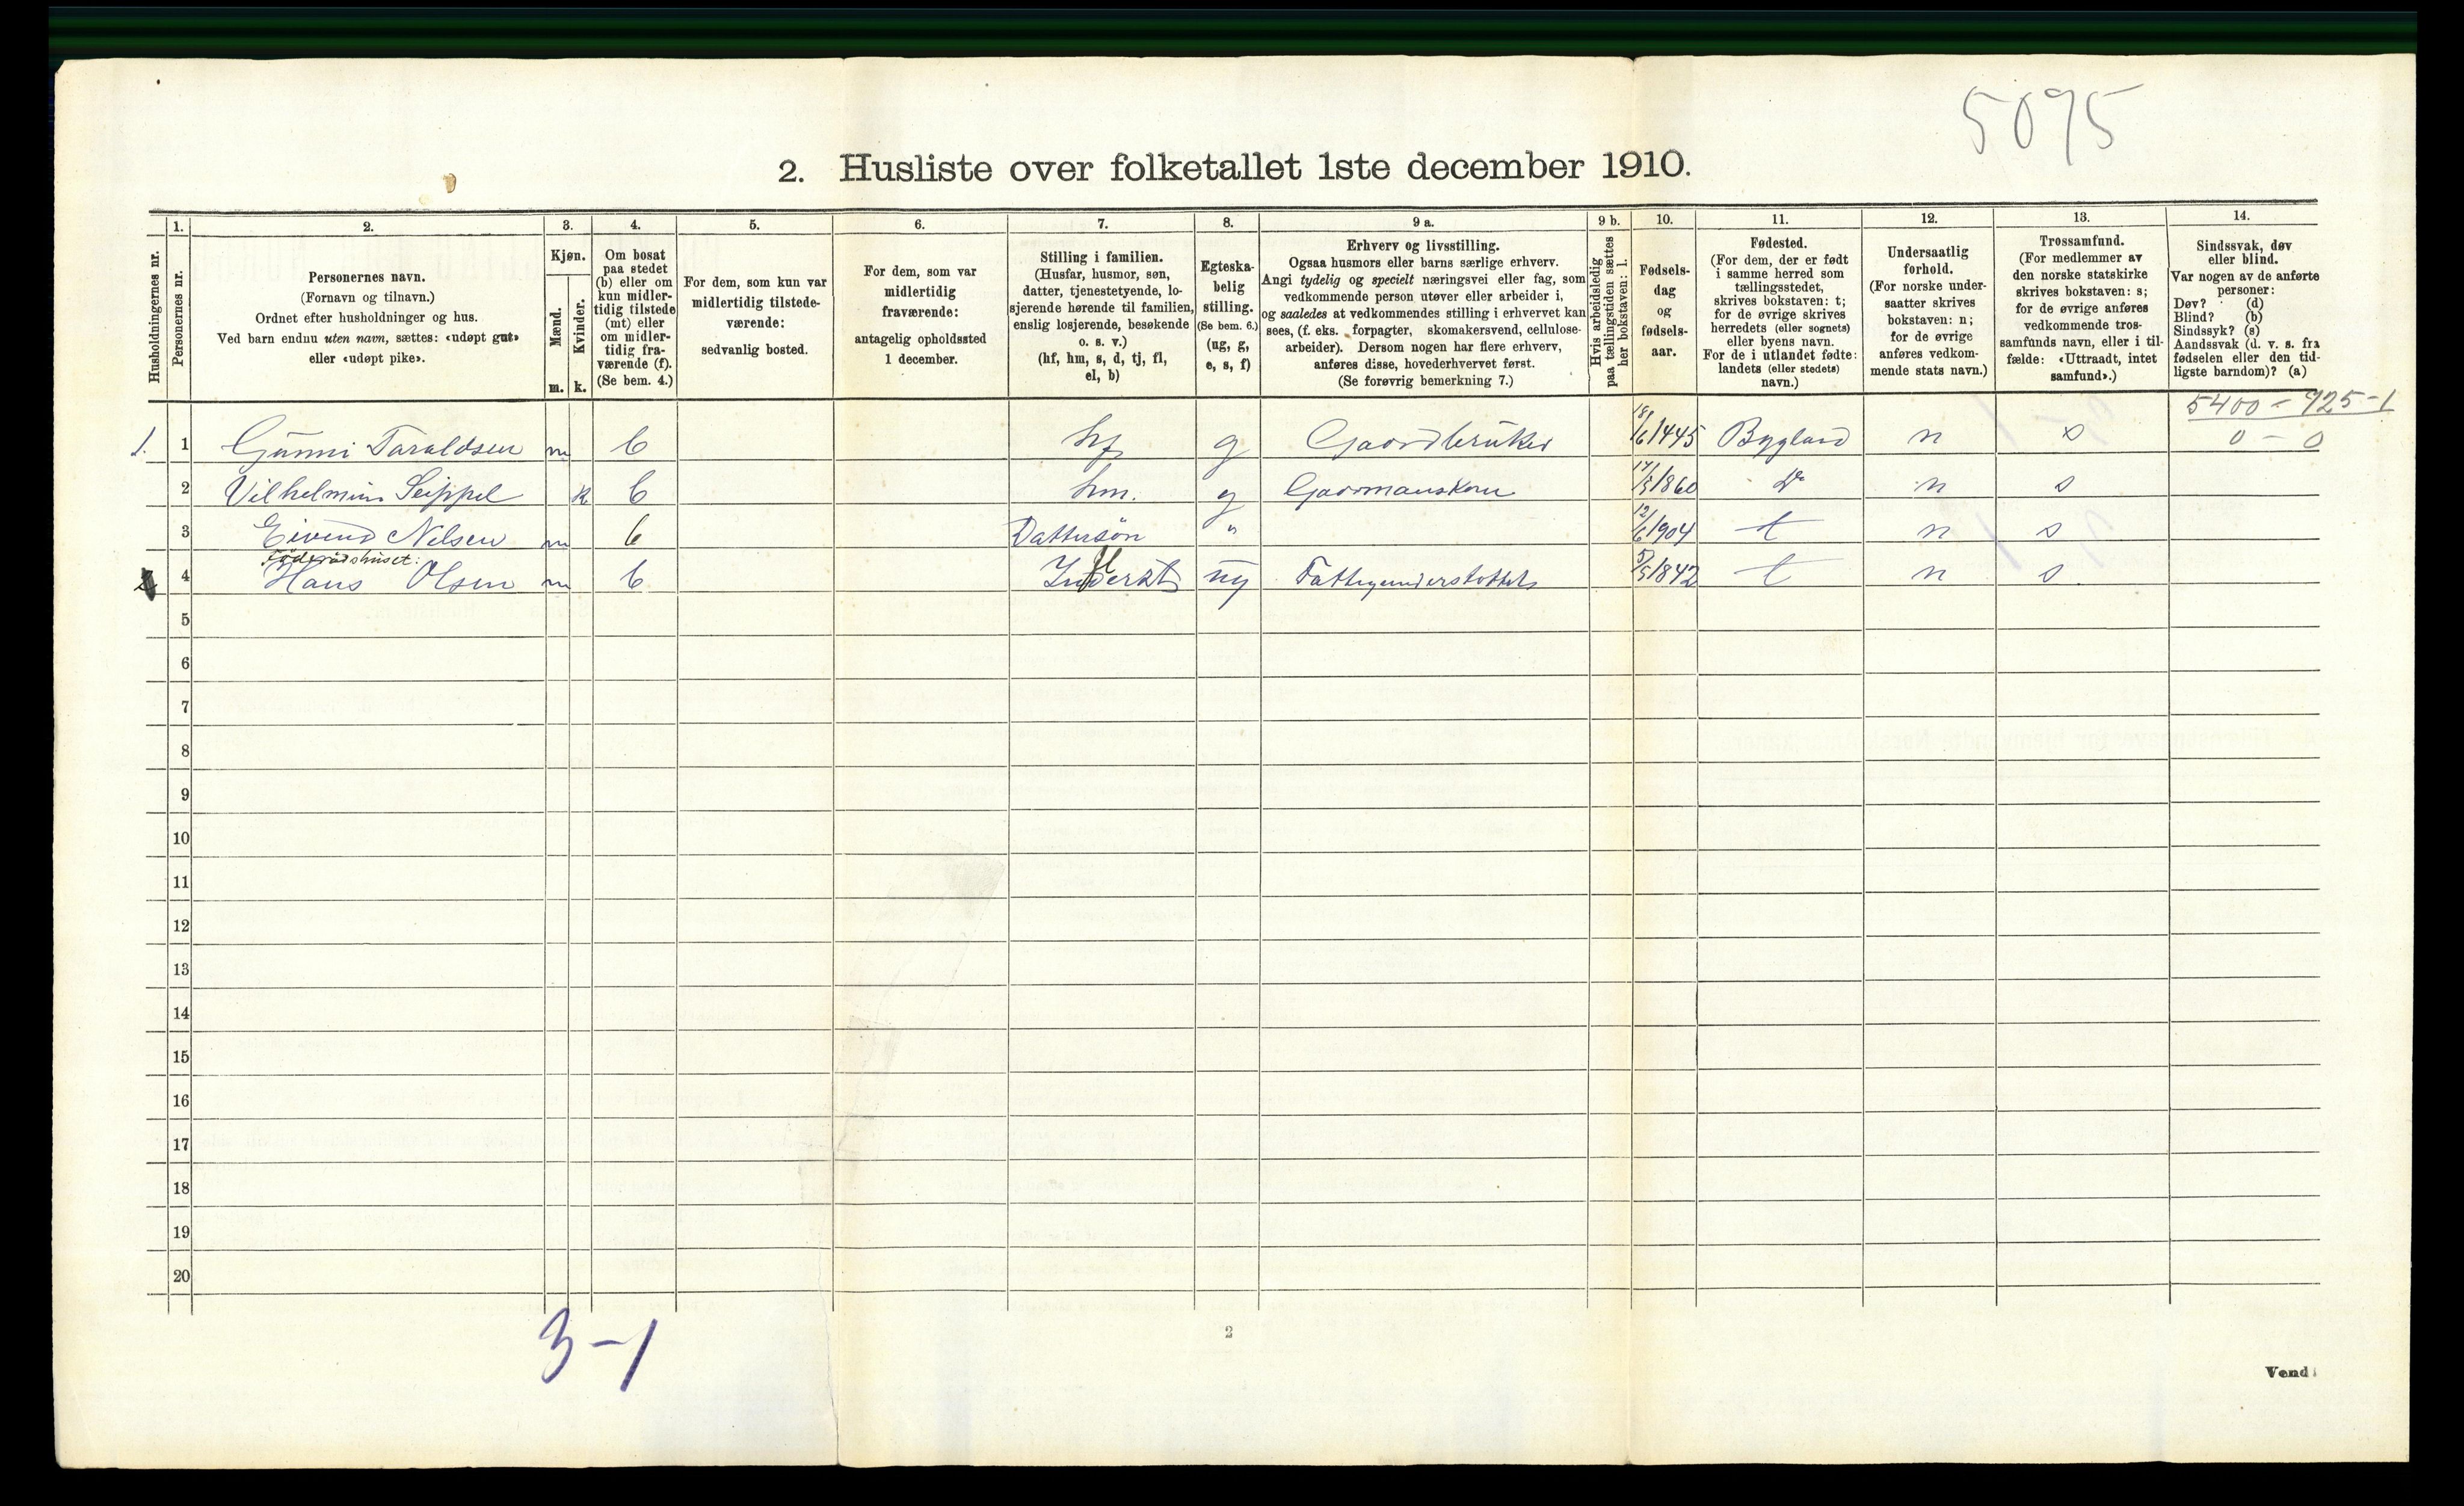 5095
2. Husliste over folketallet 1ste december 1910.
Husholdningernes nr.
1.
Personernes nr.
2.
Personernes navn.
(Fornavn og tilnavn.)
Ordnet efter husholdninger og hus.
Ved barn endnu uten navn, sættes: «udøpt gut»
eller «udøpt pike».
3.
Kjøn.
Mænd.
Kvinder.
m. k.
4.
Om bosat
paa stedet
(b) eller om
kun midler-
tidig tilstede
(mt) eller
om midler-
tidig fra-
værende (f).
(Se bem. 4.)
5.
For dem, som kun var
midlertidig tilstede-
værende:
sedvanlig bosted.
6.
For dem, som var
midlertidig
fraværende:
antagelig opholdssted
1 december.
7.
Stilling i familien.
(Husfar, husmor, søn,
datter, tjenestetyende, lo-
sjerende hørende til familien,
enslig losjerende, besøkende
o. s. v.)
(hf, hm, s, d, tj, fl,
el, b)
8.
Egteska-
belig
stilling.
(Se bem. 6.)
(ug, g,
e, s, f)
9 a.
Erhverv og livsstilling.
Ogsaa husmors eller barns særlige erhverv.
Angi tydelig og specielt næringsvei eller fag, som
vedkommende person utøver eller arbeider i,
og saaledes at vedkommendes stilling i erhvervet kan
sees, (f. eks. forpagter, skomakersvend, cellulose-
arbeider). Dersom nogen har flere erhverv,
anføres disse, hovederhvervet først.
(Se forøvrig bemerkning 7.)
9 b.
Hvis arbeidsledig
paa tællingstiden sættes
her bokstaven: l.
10.
Fødsels-
dag
og
fødsels-
aar.
11.
Fødested.
(For dem, der er født
i samme herred som
tællingsstedet,
skrives bokstaven: t;
for de øvrige skrives
herredets (eller sognets)
eller byens navn.
For de i utlandet fødte:
landets (eller stedets)
navn.)
12.
Undersaatlig
forhold.
(For norske under-
saatter skrives
bokstaven: n;
for de øvrige
anføres vedkom-
mende stats navn.)
13.
Trossamfund.
(For medlemmer av
den norske statskirke
skrives bokstaven: s;
for de øvrige anføres
vedkommende tros-
samfunds navn, eller i til-
fælde: «Uttraadt, intet
samfund».)
14.
Sindssvak, døv
eller blind.
Var nogen av de anførte
personer:
Døv? (d)
Blind? (b)
Sindssyk? (s)
Aandssvak (d. v. s. fra
fødselen eller den tid-
ligste barndom)? (a)
5400 - 925-1
1. 1 Gunni Taraldsen m b hf g Gaardbruker Bygland n s 0 - 0
2 Vilhelmine Seippel k b hm. g 17/5 1860 Do n s
3 Eivind Nelsen m b Dattersøn " 12/6 1904 t n s
Föderådshuset:
4 Hans Olsen m b ug Fattigunderstøttet 5/5 1842 t n s.
5
6
7
8
9
10
11
12
13
14
15
16
17
18
19
20
3-1
2
Vend